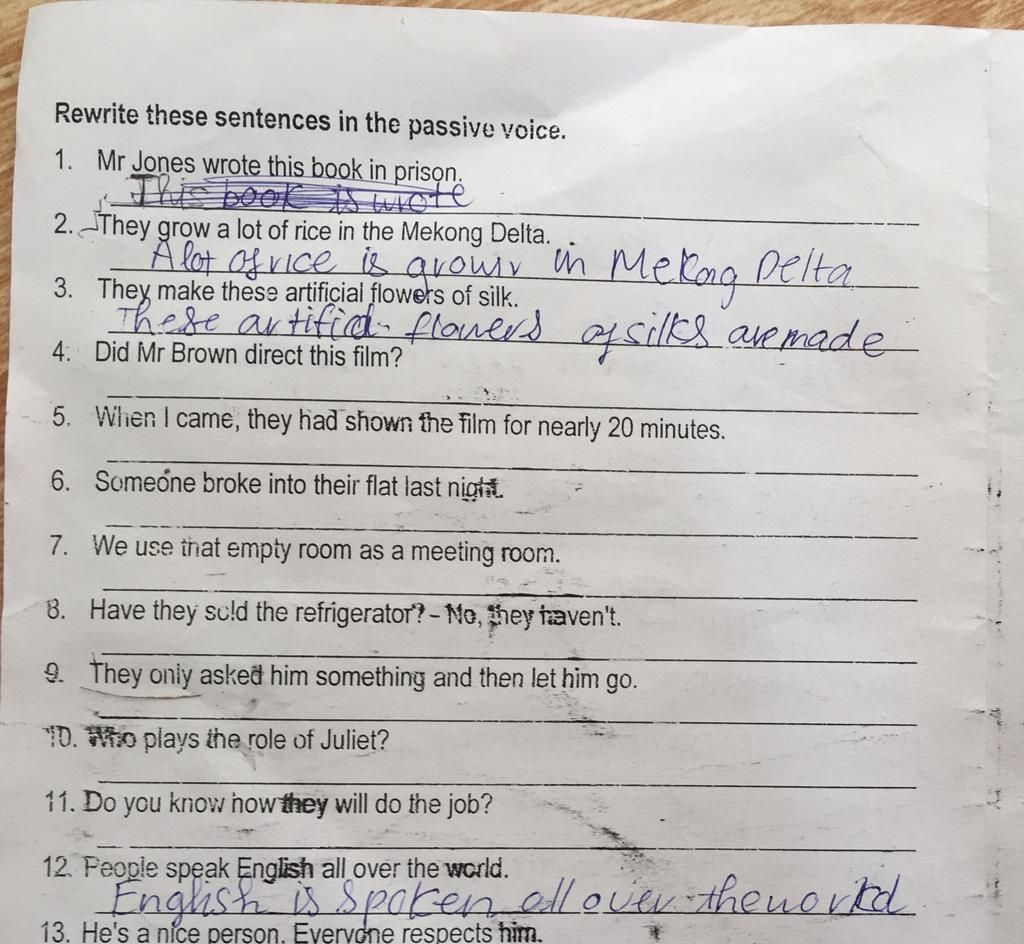 Rewrite these sentences in the passive voice.
1. Mr Jones wrote this book in prison.
This book is wrote
2. They grow a lot of rice in the Mekong Delta.
A lot of rice is grown in Mekong Delta
3. They make these artificial flowers of silk.
These artificial flowers of silks are made
4. Did Mr Brown direct this film?
5. When I came, they had shown the film for nearly 20 minutes.
6. Someone broke into their flat last night.
7. We use that empty room as a meeting room.
8. Have they sold the refrigerator? - No, they haven't.
9. They only asked him something and then let him go.
10. Who plays the role of Juliet?
11. Do you know how they will do the job?
12. People speak English all over the world.
English is spoken all over the world
13. He's a nice person. Everyone respects him.